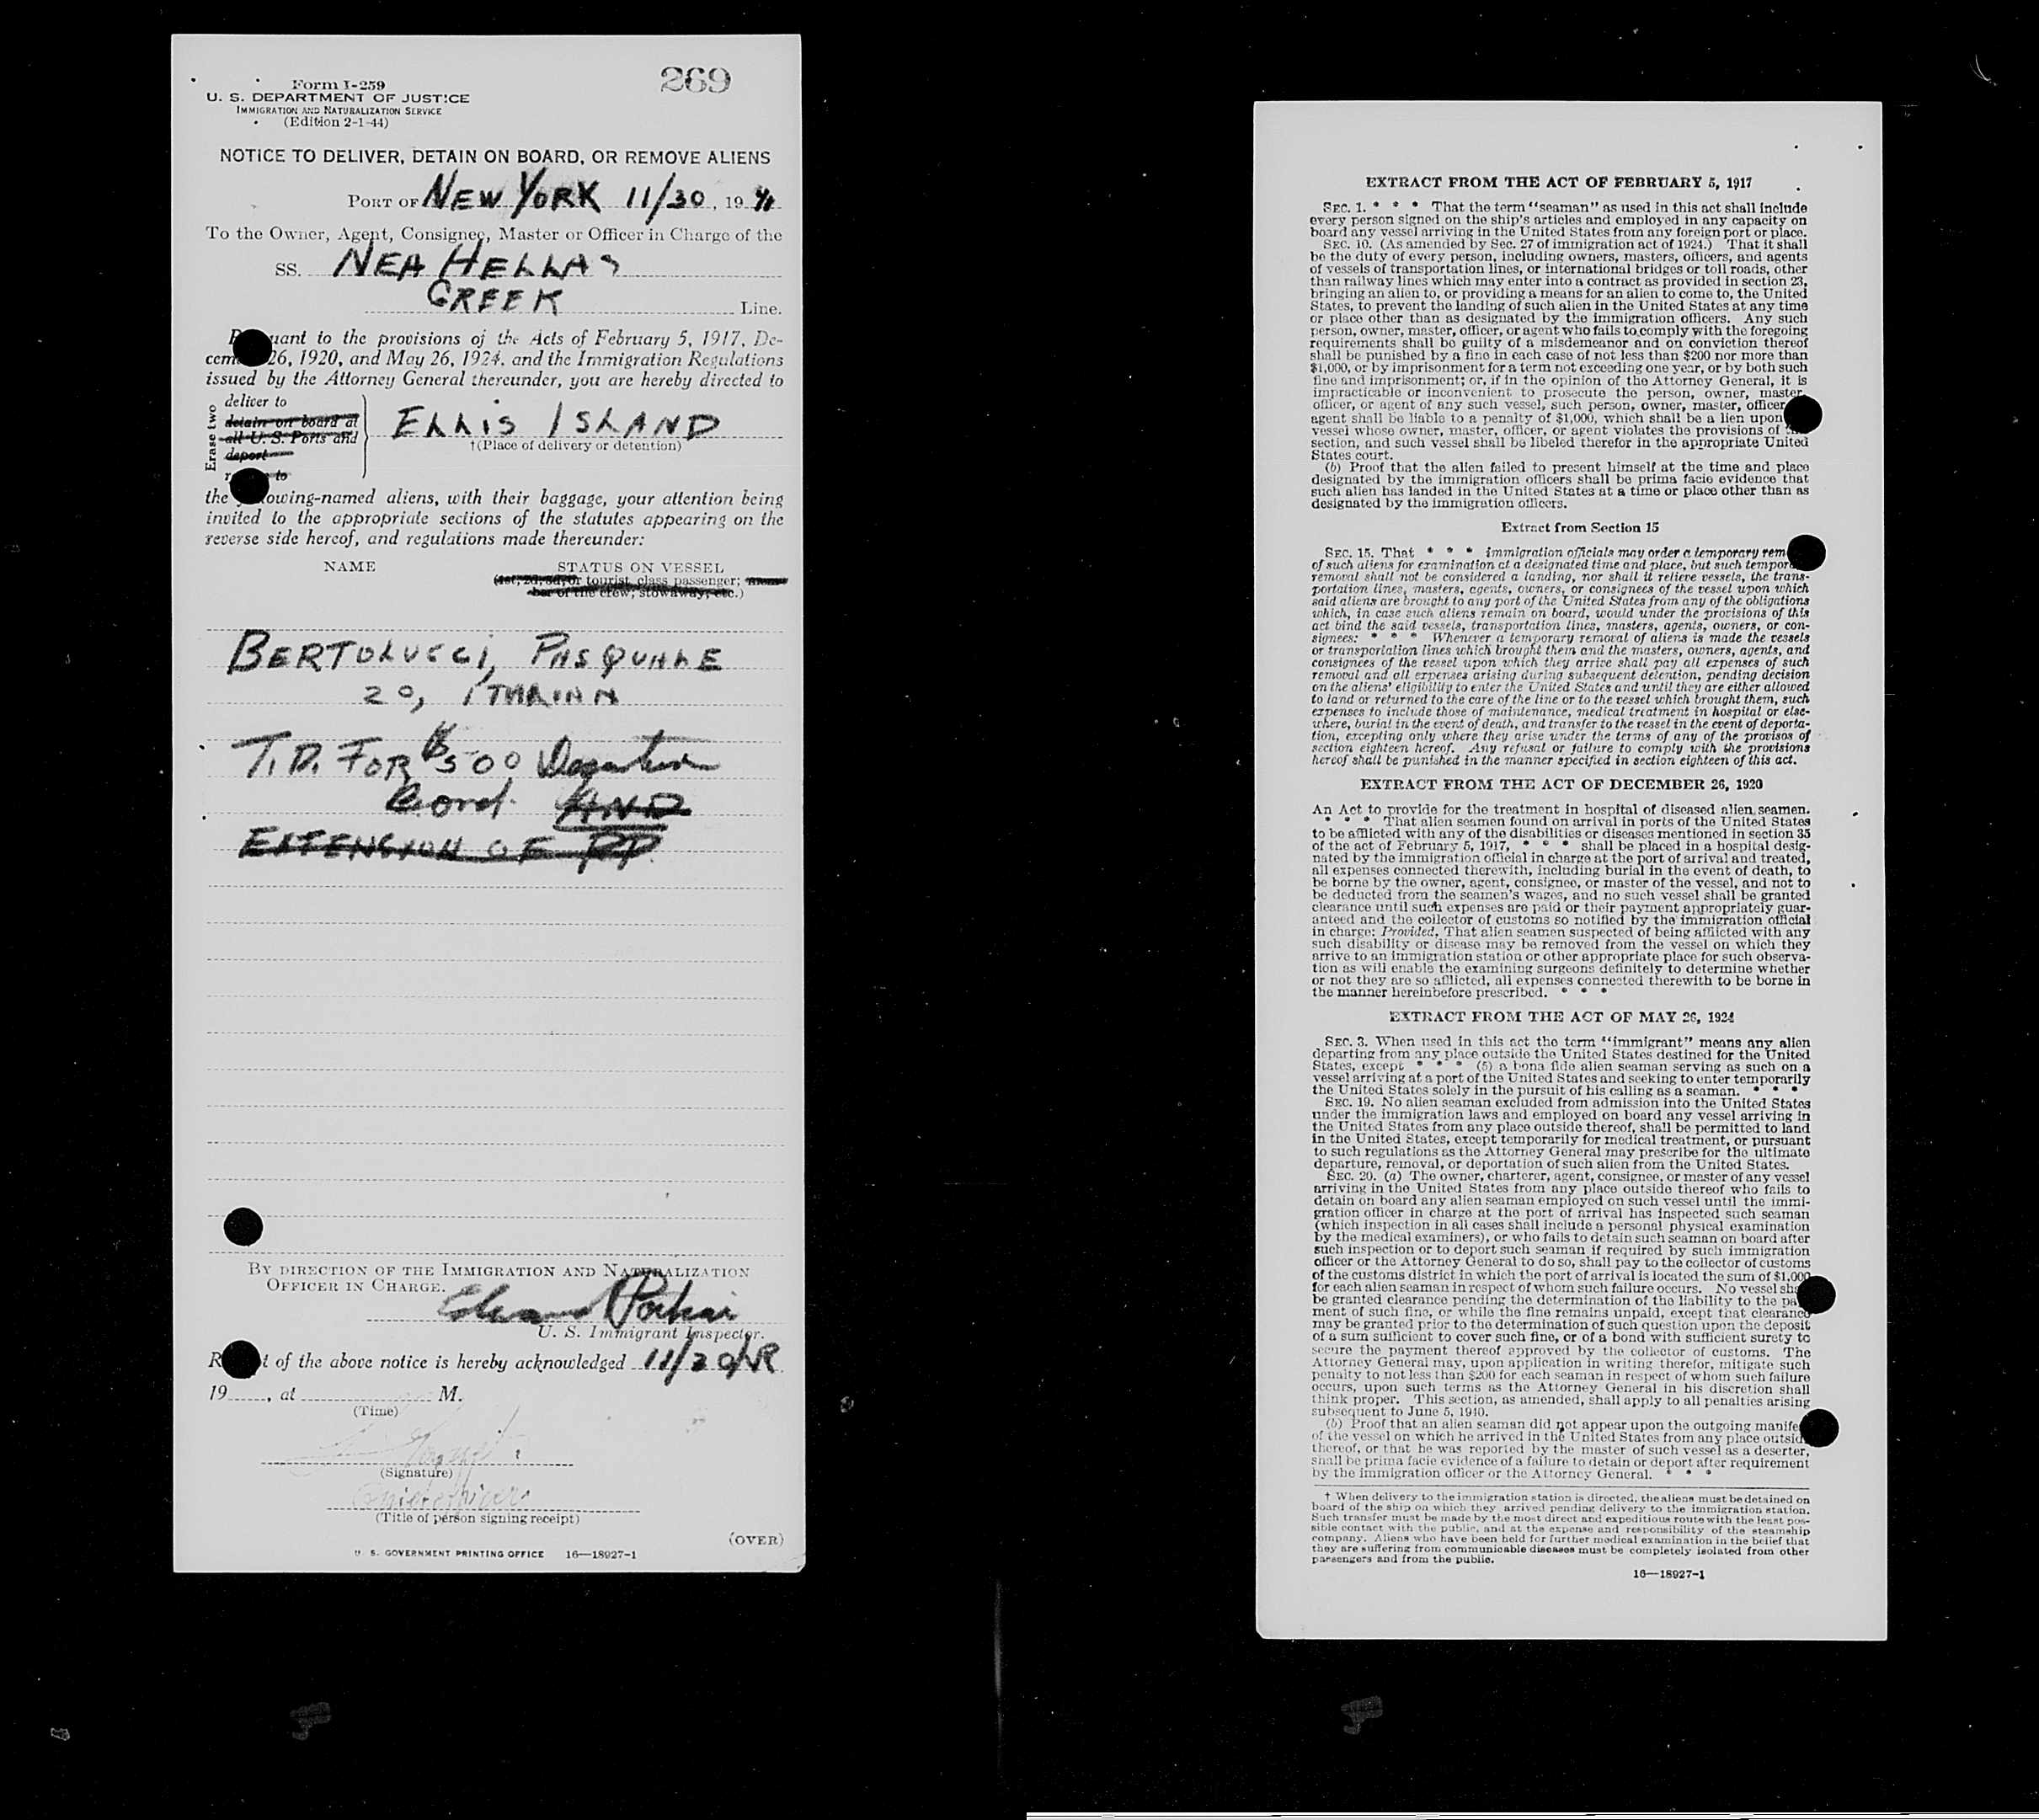 269
Form I-259
U. S. DEPARTMENT OF JUSTICE
IMMIGRATION AND NATURALIZATION SERVICE
(Edition 2-1-44)
NOTICE TO DELIVER, DETAIN ON BOARD, OR REMOVE ALIENS
PORT OF NEW YORK 11/30, 19
To the Owner, Agent, Consignee, Master or Officer in Charge of the
SS. NEA HELLAS
GREEK Line.
uant to the provisions of the Acts of February 5, 1917, De-
cem 26, 1920, and May 26, 1924, and the Immigration Regulations
issued by the Attorney General thereunder, you are hereby directed to
Erase two
deliver to
detain on board at
all U. S. Ports and
deport
to
ELLIS ISLAND
†(Place of delivery or detention)
the owing-named aliens, with their baggage, your attention being
invited to the appropriate sections of the statutes appearing on the
reverse side hereof, and regulations made thereunder:
NAME STATUS ON VESSEL
(1st, 2d, 3d, or tourist class passenger; mem-
ber of the crew; stowaway, etc.)
BERTOLUCCI, PASQUALE
20, ITALIAN
T.D. FOR $500 Departure
Bond. AND
EXTENSION OF PP
BY DIRECTION OF THE IMMIGRATION AND NATURALIZATION
OFFICER IN CHARGE.
U. S. Immigrant Inspector.
R t of the above notice is hereby acknowledged 11/30
19 , at M.
(Time)
(Signature)
(Title of person signing receipt)
(OVER)
U. S. GOVERNMENT PRINTING OFFICE 16—18927-1
EXTRACT FROM THE ACT OF FEBRUARY 5, 1917
SEC. 1. * * * That the term "seaman" as used in this act shall include
every person signed on the ship's articles and employed in any capacity on
board any vessel arriving in the United States from any foreign port or place.
SEC. 10. (As amended by Sec. 27 of immigration act of 1924.) That it shall
be the duty of every person, including owners, masters, officers, and agents
of vessels of transportation lines, or international bridges or toll roads, other
than railway lines which may enter into a contract as provided in section 23,
bringing an alien to, or providing a means for an alien to come to, the United
States, to prevent the landing of such alien in the United States at any time
or place other than as designated by the immigration officers. Any such
person, owner, master, officer, or agent who fails to comply with the foregoing
requirements shall be guilty of a misdemeanor and on conviction thereof
shall be punished by a fine in each case of not less than $200 nor more than
$1,000, or by imprisonment for a term not exceeding one year, or by both such
fine and imprisonment; or, if in the opinion of the Attorney General, it is
impracticable or inconvenient to prosecute the person, owner, master,
officer, or agent of any such vessel, such person, owner, master, officer
agent shall be liable to a penalty of $1,000, which shall be a lien upon
vessel whose owner, master, officer, or agent violates the provisions of
section, and such vessel shall be libeled therefor in the appropriate United
States court.
(b) Proof that the alien failed to present himself at the time and place
designated by the immigration officers shall be prima facio evidence that
such alien has landed in the United States at a time or place other than as
designated by the immigration officers.
Extract from Section 15
SEC. 15. That * * * immigration officials may order a temporary rem
of such aliens for examination at a designated time and place, but such tempora
removal shall not be considered a landing, nor shall it relieve vessels, the trans-
portation lines, masters, agents, owners, or consignees of the vessel upon which
said aliens are brought to any port of the United States from any of the obligations
which, in case such aliens remain on board, would under the provisions of this
act bind the said vessels, transportation lines, masters, agents, owners, or con-
signees: * * * Whenever a temporary removal of aliens is made the vessels
or transportation lines which brought them and the masters, owners, agents, and
consignees of the vessel upon which they arrive shall pay all expenses of such
removal and all expenses arising during subsequent detention, pending decision
on the aliens' eligibility to enter the United States and until they are either allowed
to land or returned to the care of the line or to the vessel which brought them, such
expenses to include those of maintenance, medical treatment in hospital or else-
where, burial in the event of death, and transfer to the vessel in the event of deporta-
tion, excepting only where they arise under the terms of any of the provisos of
section eighteen hereof. Any refusal or failure to comply with the provisions
hereof shall be punished in the manner specified in section eighteen of this act.
EXTRACT FROM THE ACT OF DECEMBER 26, 1920
An Act to provide for the treatment in hospital of diseased alien seamen.
* * * That alien seamen found on arrival in ports of the United States
to be afflicted with any of the disabilities or diseases mentioned in section 35
of the act of February 5, 1917, * * * shall be placed in a hospital desig-
nated by the immigration official in charge at the port of arrival and treated,
all expenses connected therewith, including burial in the event of death, to
be borne by the owner, agent, consignee, or master of the vessel, and not to
be deducted from the seamen's wages, and no such vessel shall be granted
clearance until such expenses are paid or their payment appropriately guar-
anteed and the collector of customs so notified by the immigration official
in charge: Provided, That alien seamen suspected of being afflicted with any
such disability or disease may be removed from the vessel on which they
arrive to an immigration station or other appropriate place for such observa-
tion as will enable the examining surgeons definitely to determine whether
or not they are so afflicted, all expenses connected therewith to be borne in
the manner hereinbefore prescribed. * * *
EXTRACT FROM THE ACT OF MAY 26, 1924
SEC. 3. When used in this act the term "immigrant" means any alien
departing from any place outside the United States destined for the United
States, except * * * (5) a bona fide alien seaman serving as such on a
vessel arriving at a port of the United States and seeking to enter temporarily
the United States solely in the pursuit of his calling as a seaman. * * *
SEC. 19. No alien seaman excluded from admission into the United States
under the immigration laws and employed on board any vessel arriving in
the United States from any place outside thereof, shall be permitted to land
in the United States, except temporarily for medical treatment, or pursuant
to such regulations as the Attorney General may prescribe for the ultimate
departure, removal, or deportation of such alien from the United States.
SEC. 20. (a) The owner, charterer, agent, consignee, or master of any vessel
arriving in the United States from any place outside thereof who fails to
detain on board any alien seaman employed on such vessel until the immi-
gration officer in charge at the port of arrival has inspected such seaman
(which inspection in all cases shall include a personal physical examination
by the medical examiners), or who fails to detain such seaman on board after
such inspection or to deport such seaman if required by such immigration
officer or the Attorney General to do so, shall pay to the collector of customs
of the customs district in which the port of arrival is located the sum of $1,000
for each alien seaman in respect of whom such failure occurs. No vessel sha
be granted clearance pending the determination of the liability to the pa
ment of such fine, or while the fine remains unpaid, except that clearance
may be granted prior to the determination of such question upon the deposit
of a sum sufficient to cover such fine, or of a bond with sufficient surety to
secure the payment thereof approved by the collector of customs. The
Attorney General may, upon application in writing therefor, mitigate such
penalty to not less than $200 for each seaman in respect of whom such failure
occurs, upon such terms as the Attorney General in his discretion shall
think proper. This section, as amended, shall apply to all penalties arising
subsequent to June 5, 1940.
(b) Proof that an alien seaman did not appear upon the outgoing manife
of the vessel on which he arrived in the United States from any place outsid
thereof, or that he was reported by the master of such vessel as a deserter,
shall be prima facie evidence of a failure to detain or deport after requirement
by the immigration officer or the Attorney General. * * *
† When delivery to the immigration station is directed, the aliens must be detained on
board of the ship on which they arrived pending delivery to the immigration station.
Such transfer must be made by the most direct and expeditious route with the least pos-
sible contact with the public, and at the expense and responsibility of the steamship
company. Aliens who have been held for further medical examination in the belief that
they are suffering from communicable diseases must be completely isolated from other
passengers and from the public.
16—18927-1